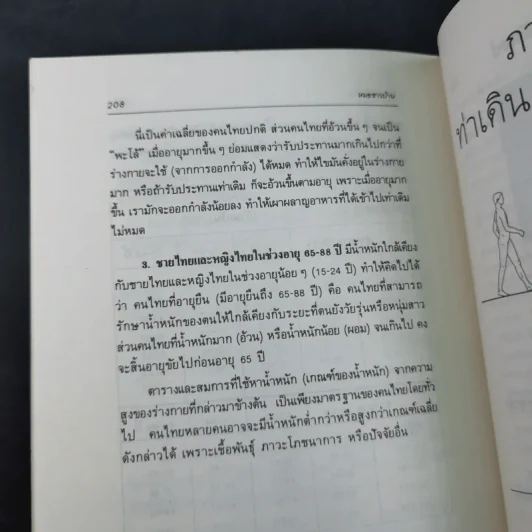 208
หมอชาวบ้าน
นี่เป็นค่าเฉลี่ยของคนไทยปกติ ส่วนคนไทยที่อ้วนขึ้น ๆ จนเป็น
"พะโล้" เมื่ออายุมากขึ้น ๆ ย่อมแสดงว่ารับประทานมากเกินไปกว่าที่
ร่างกายจะใช้ (จากการออกกำลัง) ได้หมด ทำให้ไขมันคั่งอยู่ในร่างกาย
มาก หรือถ้ารับประทานเท่าเดิม ก็จะอ้วนขึ้นตามอายุ เพราะเมื่ออายุมาก
ขึ้น เรามักจะออกกำลังน้อยลง ทำให้เผาผลาญอาหารที่ได้เข้าไปเท่าเดิม
ไม่หมด
3. ชายไทยและหญิงไทยในช่วงอายุ 65-88 ปี มีน้ำหนักใกล้เคียง
กับชายไทยและหญิงไทยในช่วงอายุน้อย ๆ (15-24 ปี) ทำให้คิดไปได้
ว่า คนไทยที่อายุยืน (มีอายุยืนถึง 65-88 ปี) คือ คนไทยที่สามารถ
รักษาน้ำหนักของตนให้ใกล้เคียงกับระยะที่ตนยังวัยรุ่นหรือหนุ่มสาว
ส่วนคนไทยที่น้ำหนักมาก (อ้วน) หรือน้ำหนักน้อย (ผอม) จนเกินไป คง
จะสิ้นอายุขัยไปก่อนอายุ 65 ปี
ตารางและสมการที่ใช้หาน้ำหนัก (เกณฑ์ของน้ำหนัก) จากความ
สูงของร่างกายที่กล่าวมาข้างต้น เป็นเพียงมาตรฐานของคนไทยโดยทั่ว
ไป คนไทยหลายคนอาจจะมีน้ำหนักต่ำกว่าหรือสูงกว่าเกณฑ์เฉลี่ย
ดังกล่าวได้ เพราะเชื้อพันธุ์ ภาวะโภชนาการ หรือปัจจัยอื่น
ท่าเดิน